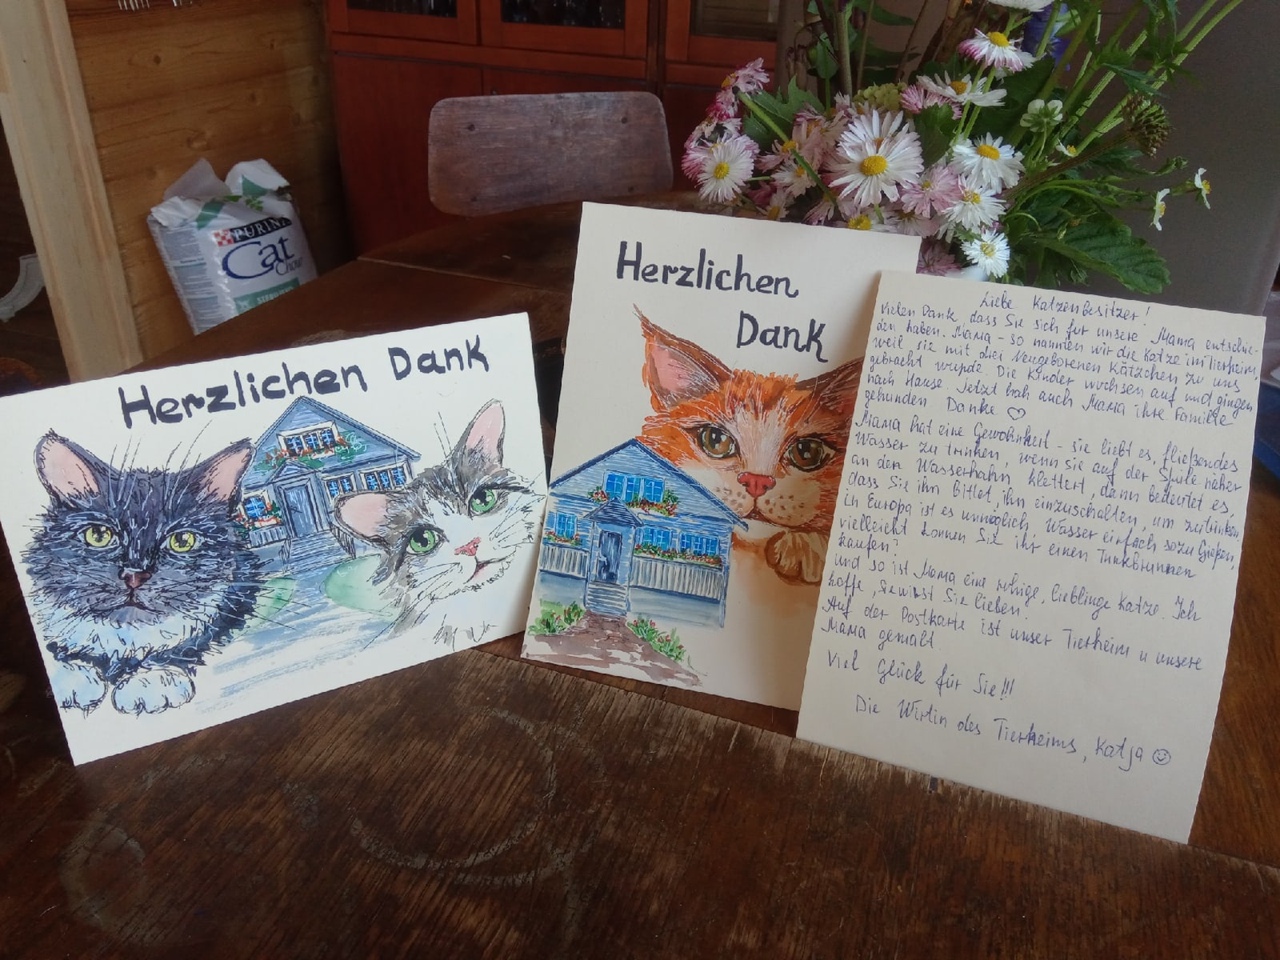 PURINA
Cat
Chow
Herzlichen Dank
Herzlichen
Dank
Liebe Katzenbesitzer!
Vielen Dank, dass Sie sich für unsere Mama entschie-
den haben. Mama - so nannten wir die Katze im Tierheim,
weil sie mit drei Neugeborenen Kätzchen zu uns
gebracht wurde. Die Kinder wuchsen auf und gingen
nach Hause. Jetzt hat auch Mama ihre Familie
gefunden. Danke ♡
Mama hat eine Gewohnheit - sie liebt es, fließendes
Wasser zu trinken, wenn sie auf der Spüle näher
an den Wasserhahn klettert, dann bedeutet es,
dass Sie ihn bittet, ihn einzuschalten, um zu trinken
in Europa ist es unmöglich Wasser einfach so zu gießen,
vielleicht können Sie ihr einen Trinkbrunnen
kaufen?
und so ist Mama eine ruhige, liebliche Katze. Ich
hoffe, Sie lieben
Auf der Postkarte ist unser Tierheim u unsere
Mama gemalt.
Viel Glück für Sie!!!
Die Wirtin des Tierheims, Katja ☺